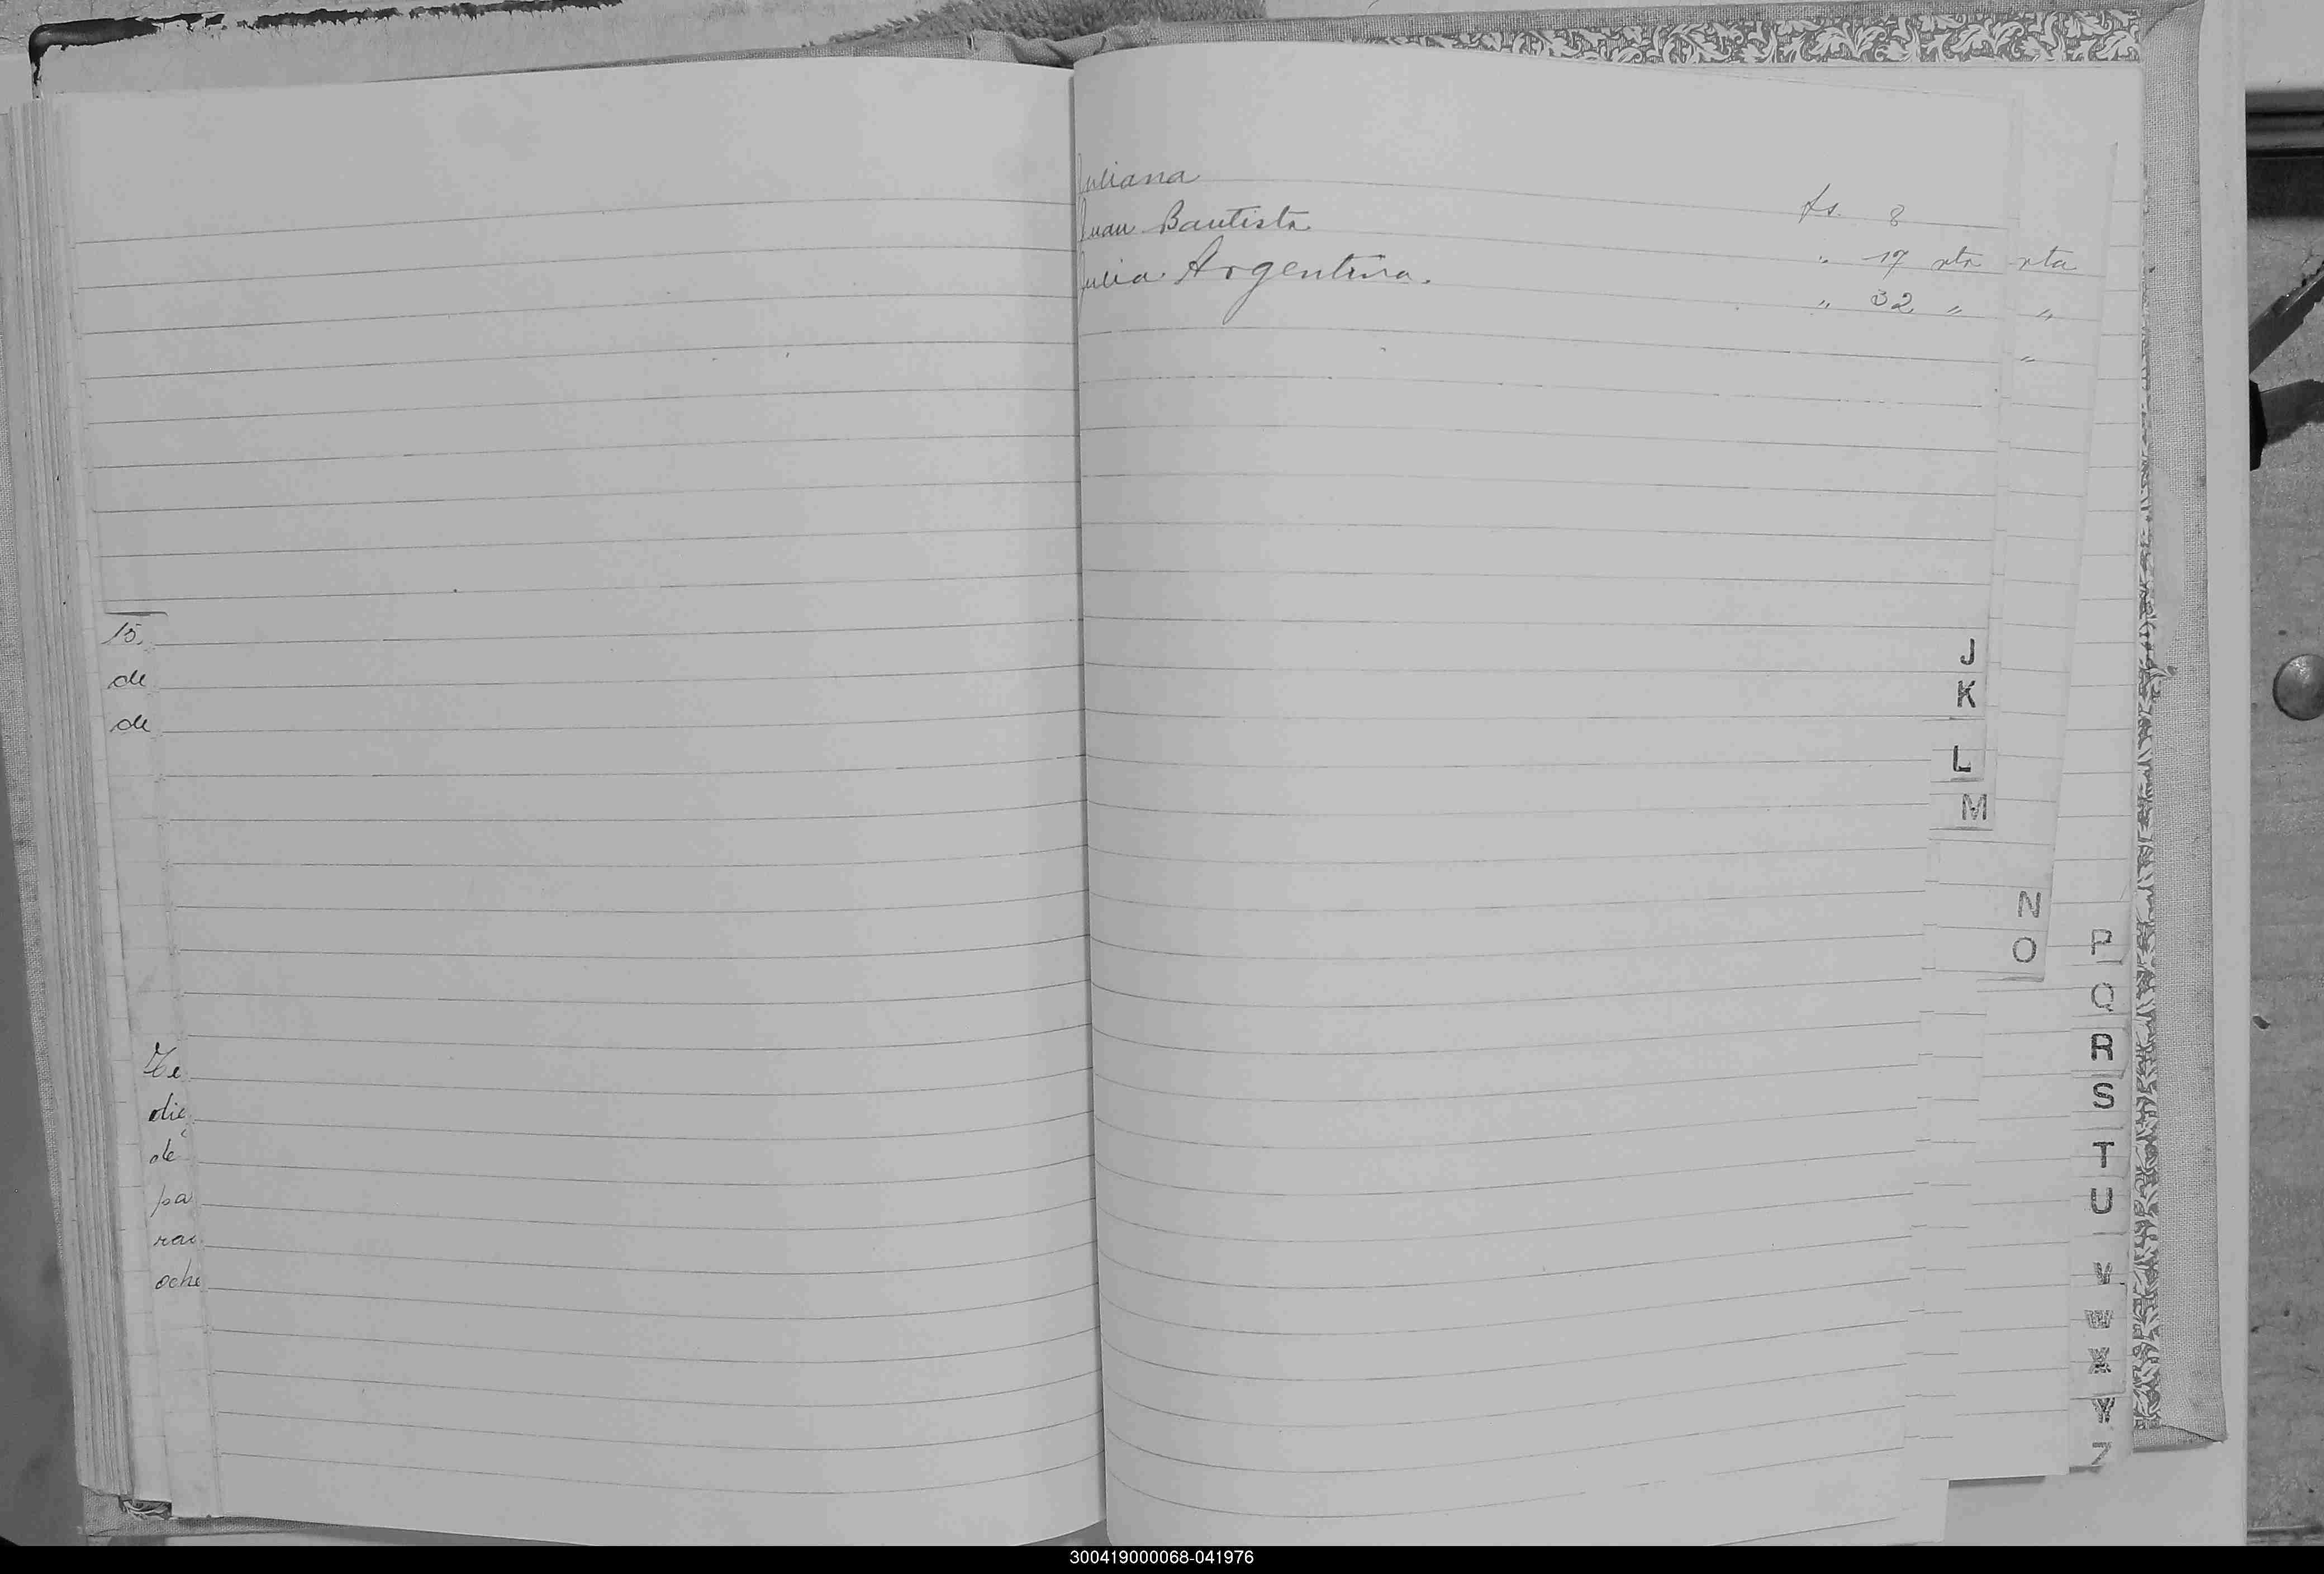 15.
de
de
He
die
de
pa
rai
oche
Juliana fs. 8
Juan Bautista " 17 vta vta
Julia Argentina. " 32 " "
"
J
K
L
M
N
O
P
Q
R
S
T
U
V
W
X
Y
Z
300419000068-041976